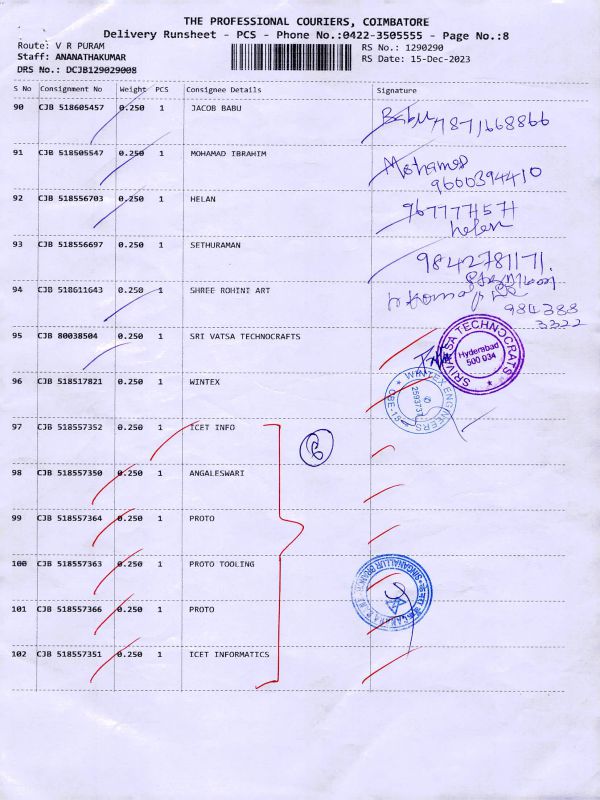 THE PROFESSIONAL COURIERS, COIMBATORE
Delivery Runsheet - PCS - Phone No.:0422-3505555 - Page No.:8
Route: V R PURAM
Staff: ANANATHAKUMAR
DRS No.: DCJB129029008
RS No.: 1290290
RS Date: 15-Dec-2023
S No Consignment No Weight PCS Consignee Details Signature
90 CJB 518605457 0.250 1 JACOB BABU Babu
91 CJB 518505547 0.250 1 MOHAMAD IBRAHIM Mohamed
9600394410
92 CJB 518556703 0.250 1 HELAN
helen
93 CJB 518556697 0.250 1 SETHURAMAN 9842781171.
94 CJB 518611643 0.250 1 SHREE ROHINI ART
984388
3322
95 CJB 80038504 0.250 1 SRI VATSA TECHNOCRAFTS
SRIVATSA TECHNOCRATS
Hyderabad
500 034
96 CJB 518517821 0.250 1 WINTEX
WINTEX ENGINEERS
CBE-15
97 CJB 518557352 0.250 1 ICET INFO
6
98 CJB 518557350 0.250 1 ANGALESWARI
99 CJB 518557364 0.250 1 PROTO
100 CJB 518557363 0.250 1 PROTO TOOLING
101 CJB 518557366 0.250 1 PROTO
102 CJB 518557351 0.250 1 ICET INFORMATICS